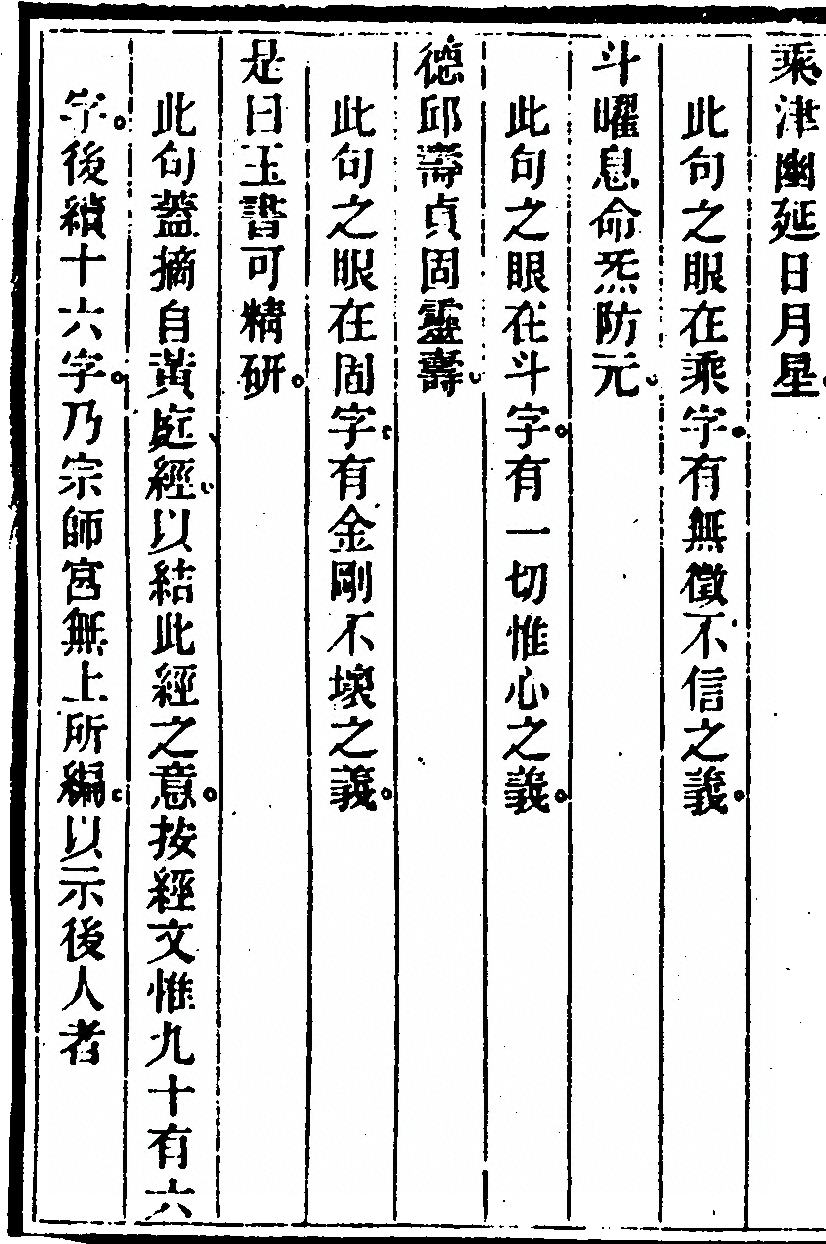 乘津幽延日月星。
此句之眼在乘字。有無徵不信之義。
斗曜息命炁防元。
此句之眼在斗字。有一切惟心之義。
德邱壽貞固靈壽。
此句之眼在固字。有金剛不壞之義。
是曰玉書可精研。
此句蓋摘自黃庭經。以結此經之意。按經文惟九十有六
字。後續十六字。乃宗師宮無上所編。以示後人者